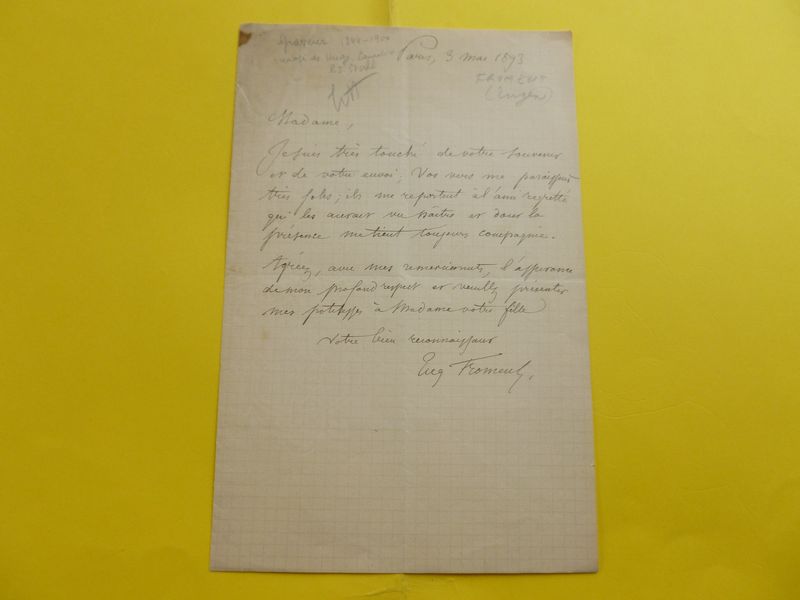 graveur 1844-1900
Paris, 3 mai 1893
FROMENT
(Eugène)
Madame,
Je suis très touché de votre souvenir
et de votre envoi; Vos vers me paraissent
très jolis; ils me reportent à l'ami regretté
qui les aurait vu naître et dont la
présence me tient toujours compagnie.
Agréez, avec mes remerciements, l'assurance
de mon profond respect et veuillez présenter
mes politesses à Madame votre fille
Votre bien reconnaissant
Eug Froment.